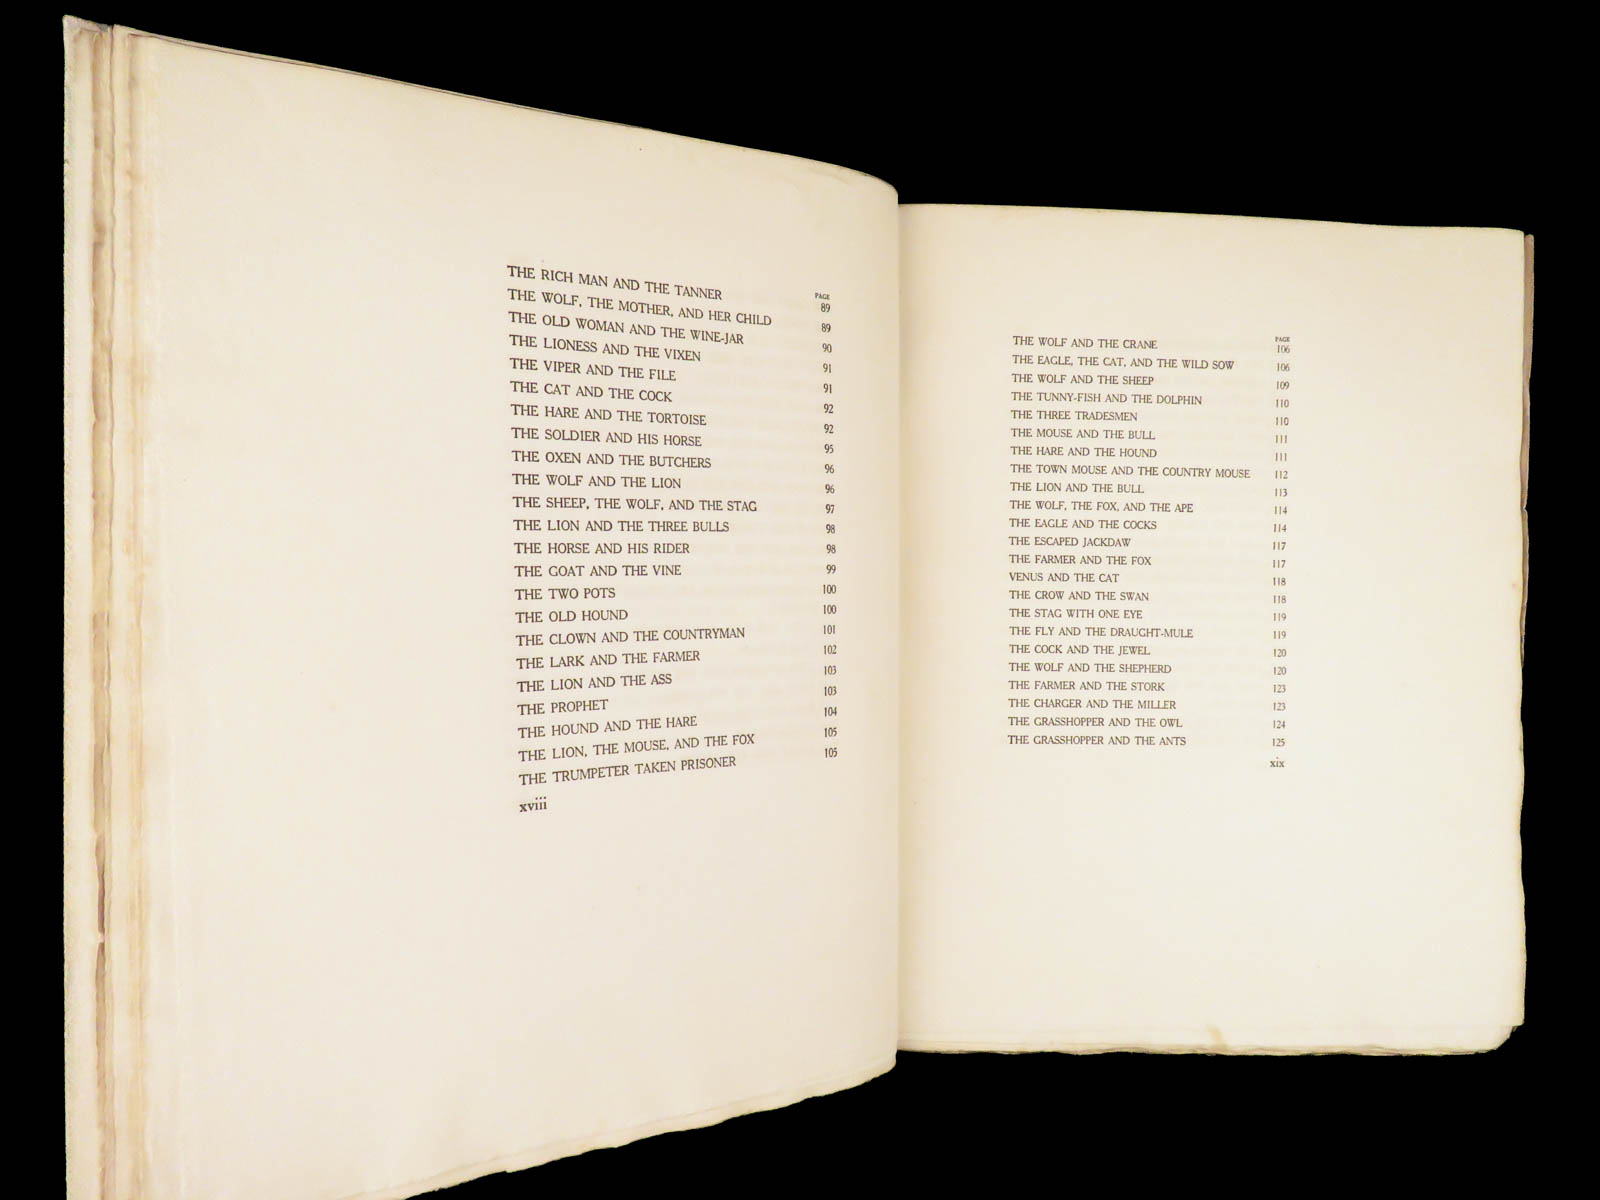 PAGE
THE RICH MAN AND THE TANNER 89
THE WOLF, THE MOTHER, AND HER CHILD 89
THE OLD WOMAN AND THE WINE-JAR 90
THE LIONESS AND THE VIXEN 91
THE VIPER AND THE FILE 91
THE CAT AND THE COCK 92
THE HARE AND THE TORTOISE 92
THE SOLDIER AND HIS HORSE 95
THE OXEN AND THE BUTCHERS 96
THE WOLF AND THE LION 96
THE SHEEP, THE WOLF, AND THE STAG 97
THE LION AND THE THREE BULLS 98
THE HORSE AND HIS RIDER 98
THE GOAT AND THE VINE 99
THE TWO POTS 100
THE OLD HOUND 100
THE CLOWN AND THE COUNTRYMAN 101
THE LARK AND THE FARMER 102
THE LION AND THE ASS 103
THE PROPHET 103
THE HOUND AND THE HARE 104
THE LION, THE MOUSE, AND THE FOX 105
THE TRUMPETER TAKEN PRISONER 105
xviii
PAGE
THE WOLF AND THE CRANE 106
THE EAGLE, THE CAT, AND THE WILD SOW 106
THE WOLF AND THE SHEEP 109
THE TUNNY-FISH AND THE DOLPHIN 110
THE THREE TRADESMEN 110
THE MOUSE AND THE BULL 111
THE HARE AND THE HOUND 111
THE TOWN MOUSE AND THE COUNTRY MOUSE 112
THE LION AND THE BULL 113
THE WOLF, THE FOX, AND THE APE 114
THE EAGLE AND THE COCKS 114
THE ESCAPED JACKDAW 117
THE FARMER AND THE FOX 117
VENUS AND THE CAT 118
THE CROW AND THE SWAN 118
THE STAG WITH ONE EYE 119
THE FLY AND THE DRAUGHT-MULE 119
THE COCK AND THE JEWEL 120
THE WOLF AND THE SHEPHERD 120
THE FARMER AND THE STORK 123
THE CHARGER AND THE MILLER 123
THE GRASSHOPPER AND THE OWL 124
THE GRASSHOPPER AND THE ANTS 125
xix